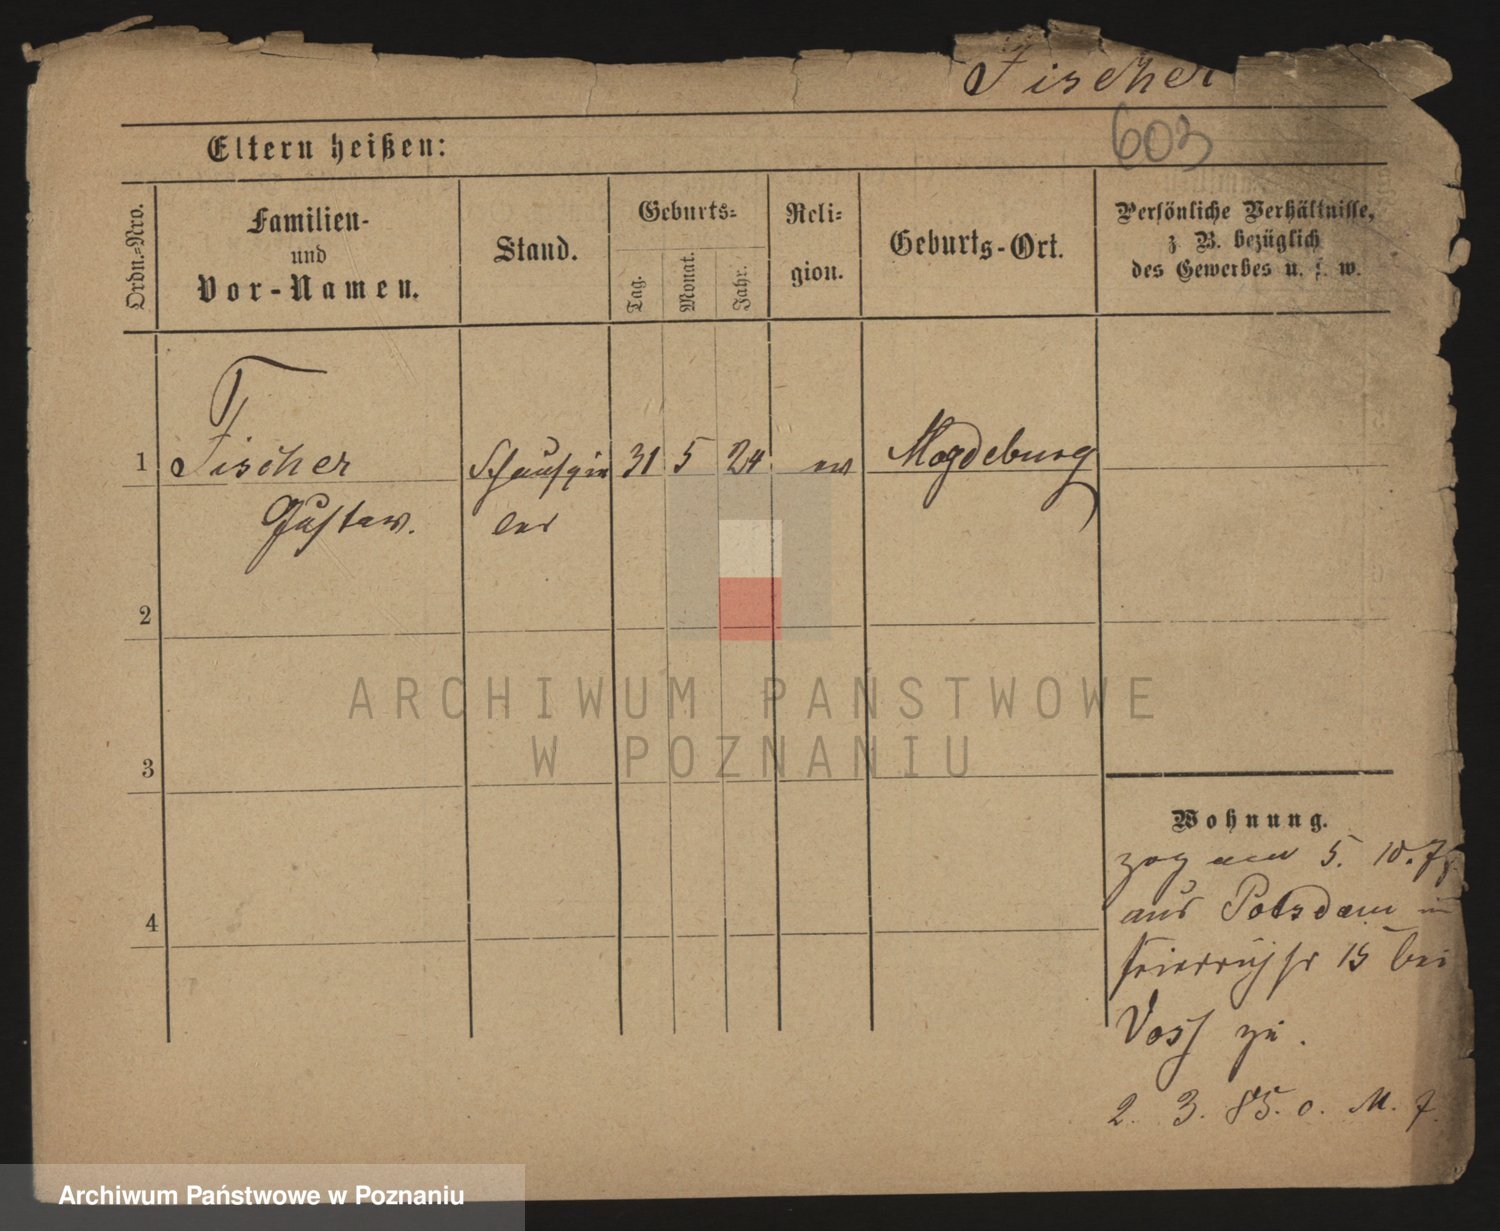 Fischer
603
Eltern heißen:
Ordn.-Nro.
Familien-
und
Vor-Namen.
Stand.
Geburts-
Tag.
Monat.
Jahr.
Reli-
gion.
Geburts-Ort.
Persönliche Verhältnisse,
z. B. bezüglich
des Gewerbes u. s. w.
1 Fischer Schauspie 31 5 24 ev Magdeburg
Gustav. ler
2
3
4
Wohnung.
zog am 5. 10. 7
aus Potsdam
15 bei
Voss zu.
2. 3. 85. o. M. f.
ARCHIWUM PAŃSTWOWE
W POZNANIU
Archiwum Państwowe w Poznaniu